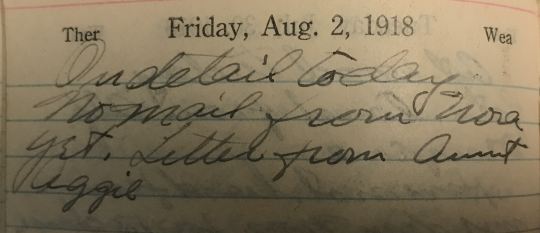 Ther Friday, Aug. 2, 1918 Wea
On detail today
No mail from Nora
yet. Letter from Aunt
Aggie